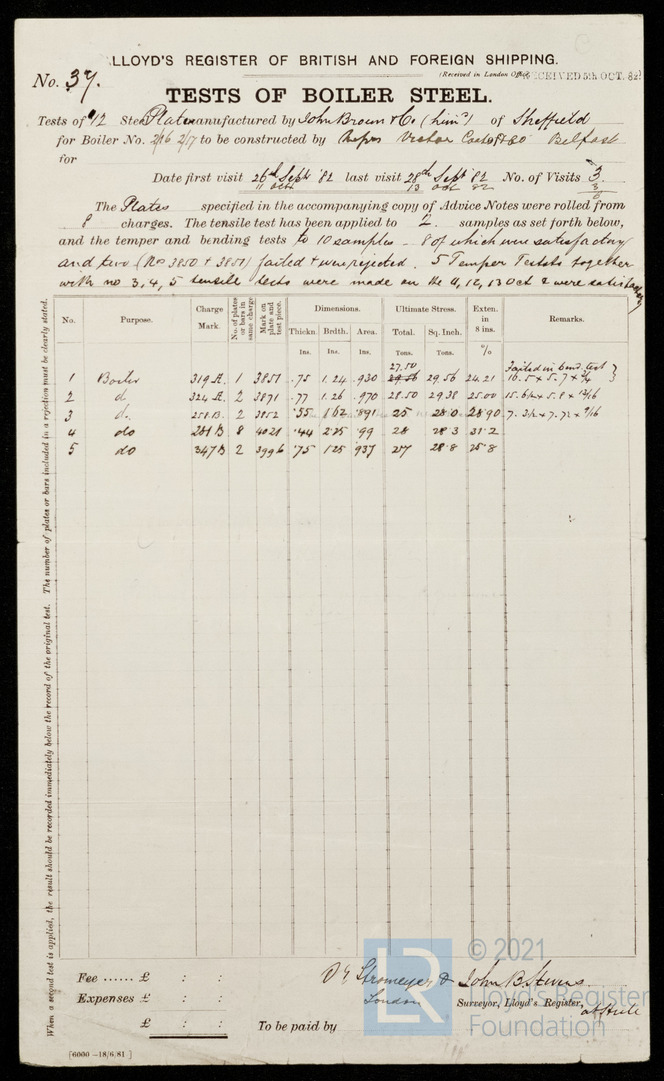 LLOYD'S REGISTER OF BRITISH AND FOREIGN SHIPPING.
(Received in London Office RECEIVED 5th OCT. 82)
No. 37.
TESTS OF BOILER STEEL.
Tests of 12 Steel Plates manufactured by John Brown & Co. (Lim.d) of Sheffield
for Boiler No. 2/16 2/17 to be constructed by Messrs Victor Coates & Co Belfast
for
Date first visit 26th Sept '82 last visit 28th Sept '82 No. of Visits 3.
11 Oct 13 Oct 82 3
6
The Plates specified in the accompanying copy of Advice Notes were rolled from
8 charges. The tensile test has been applied to 2 samples as set forth below,
and the temper and bending tests to 10 samples - 8 of which were satisfactory
and two (Nos 3850 & 3851) failed & were rejected. 5 Temper Tests together
with no 3, 4, 5 tensile tests were made on the 11, 12, 13 Oct & were satisfactory
No. Purpose. Charge Mark. No. of plates or bars in same charge Mark on plate and test piece. Dimensions. Ultimate Stress. Exten. in 8 ins. Remarks.
Thickn. Brdth. Area. Total. Sq. Inch.
Ins. Ins. Ins. Tons. Tons. %
27.50 Failed in bend test
1 Boiler 319 A. 1 3851 .75 1.24 .930 29.56 29.56 24.21 16.5 x 5.7 x 3/4 }
2 do 324 A. 2 3871 .77 1.26 .970 28.50 29.38 25.00 15.6½ x 5.8 x 13/16
3 do. 258 B. 2 3852 .55 1.62 .891 25 28.0 28.90 7.3½ x 7.7½ x 9/16
4 do 281 B 8 4021 .44 2.25 .99 28 28.3 31.2
5 do 347 B 2 3996 .75 1.25 .937 27 28.8 25.8
When a second test is applied, the result should be recorded immediately below the record of the original test. The number of plates or bars included in a rejection must be clearly stated.
Fee ...... £ : :
Expenses £ : :
£ : :
To be paid by
Stromeyer & John B. Stevens.
London Surveyor, Lloyd's Register,
at Hull
[6000 -18/6/81]
LR
© 2021
Lloyd's Register
Foundation